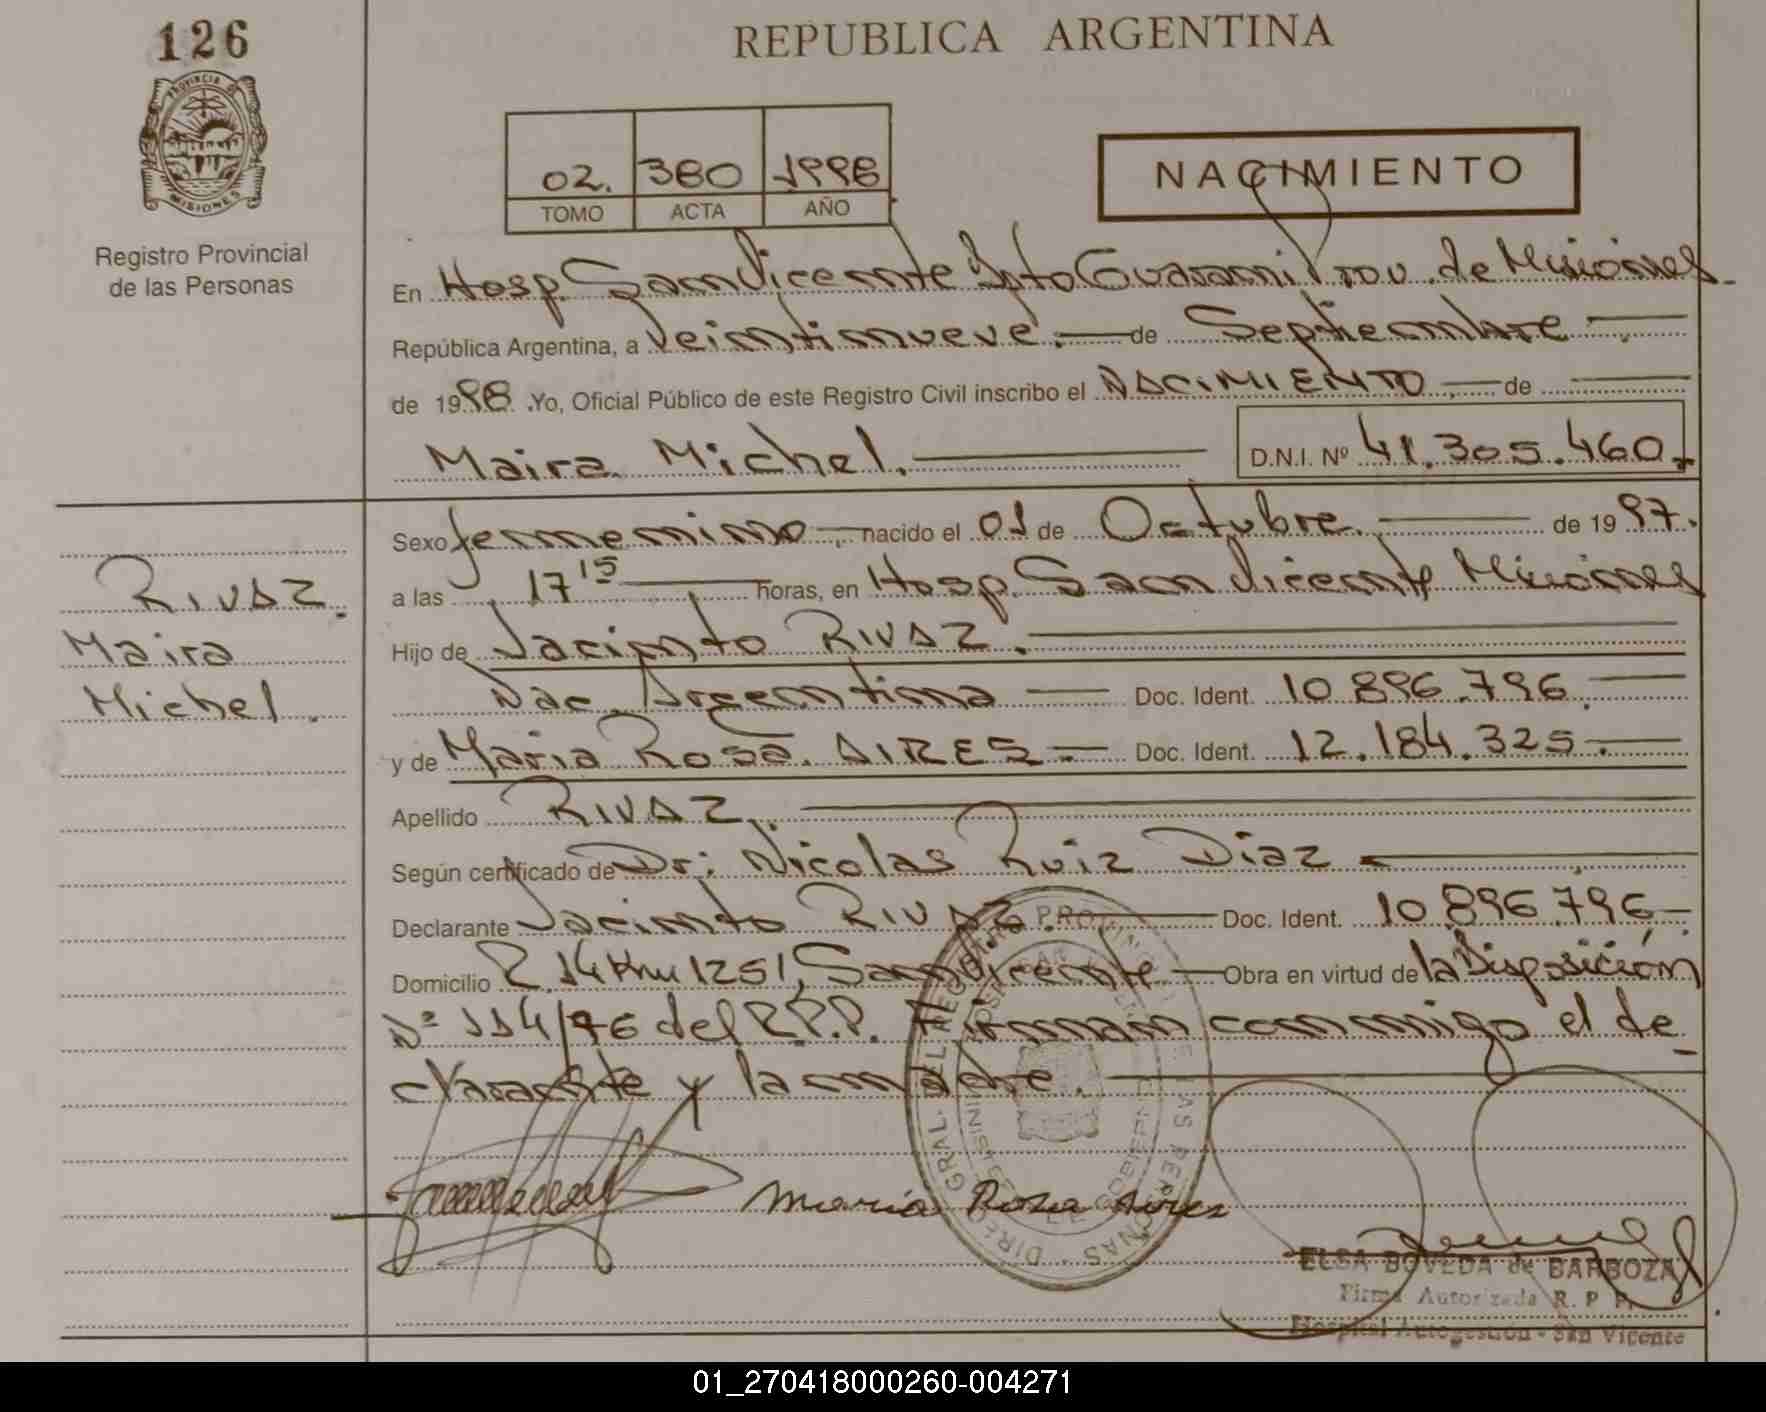 126
REPUBLICA ARGENTINA
PROVINCIA DE
MISIONES
Registro Provincial
de las Personas
02. 380 1998
TOMO ACTA AÑO
NACIMIENTO
En Hosp. San Vicente Dpto Guarani Prov. de Misiones
República Argentina, a Veintinueve. de Septiembre
de 1998. Yo, Oficial Público de este Registro Civil inscribo el NACIMIENTO de
Maira Michel. D.N.I. Nº 41.305.460.
Sexo femenino, nacido el 01 de Octubre. de 1997.
a las 17 15 horas, en Hosp. San Vicente Misiones
Hijo de Jacinto RIVAZ.
Nac. Argentina Doc. Ident. 10.896.796.
y de Maria Rosa. AIRES Doc. Ident. 12.184.325.
Apellido RIVAZ
Según certificado de Dr: Nicolas Ruiz Diaz
Declarante Jacinto RIVAZ. Doc. Ident. 10.896.796
Domicilio R.14 Km 1251, San Vicente Obra en virtud de la Disposición
Nº 114/96 del R.P.P. Firman conmigo el de
clarante y la madre.
RIVAZ.
Maira
Michel.
Maria Rosa Aires
ELSA BOVEDA de BARBOZA
Firma Autorizada R. P P.
Hospital Autogestión - San Vicente
01_270418000260-004271